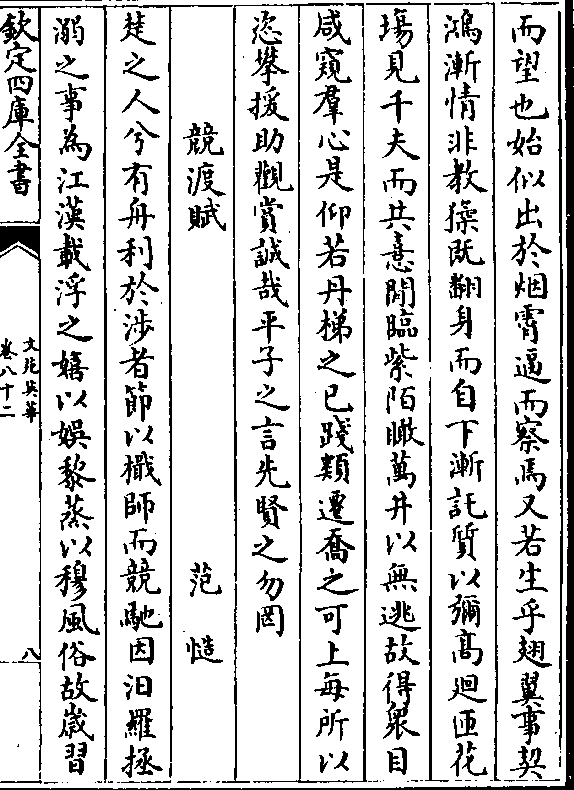 而望也始似出於烟霄逼而察焉又若生乎翅翼事契
鴻漸情非教猱既翻身而自下漸託質以彌高廻匝花
場見千夫而共憙閒臨紫陌瞰萬井以無逃故得衆目
咸窺羣心是仰若丹梯之已踐類遷喬之可上每所以
恣攀援助觀賞誠哉平子之言先賢之勿罔
競渡賦　范慥
楚之人兮有舟利於涉者節以檝師而競馳因汨羅拯
溺之事為江漢載浮之嬉以娯黎蒸以穆風俗故歲習
欽定四庫全書
文苑英華
卷八十二
八